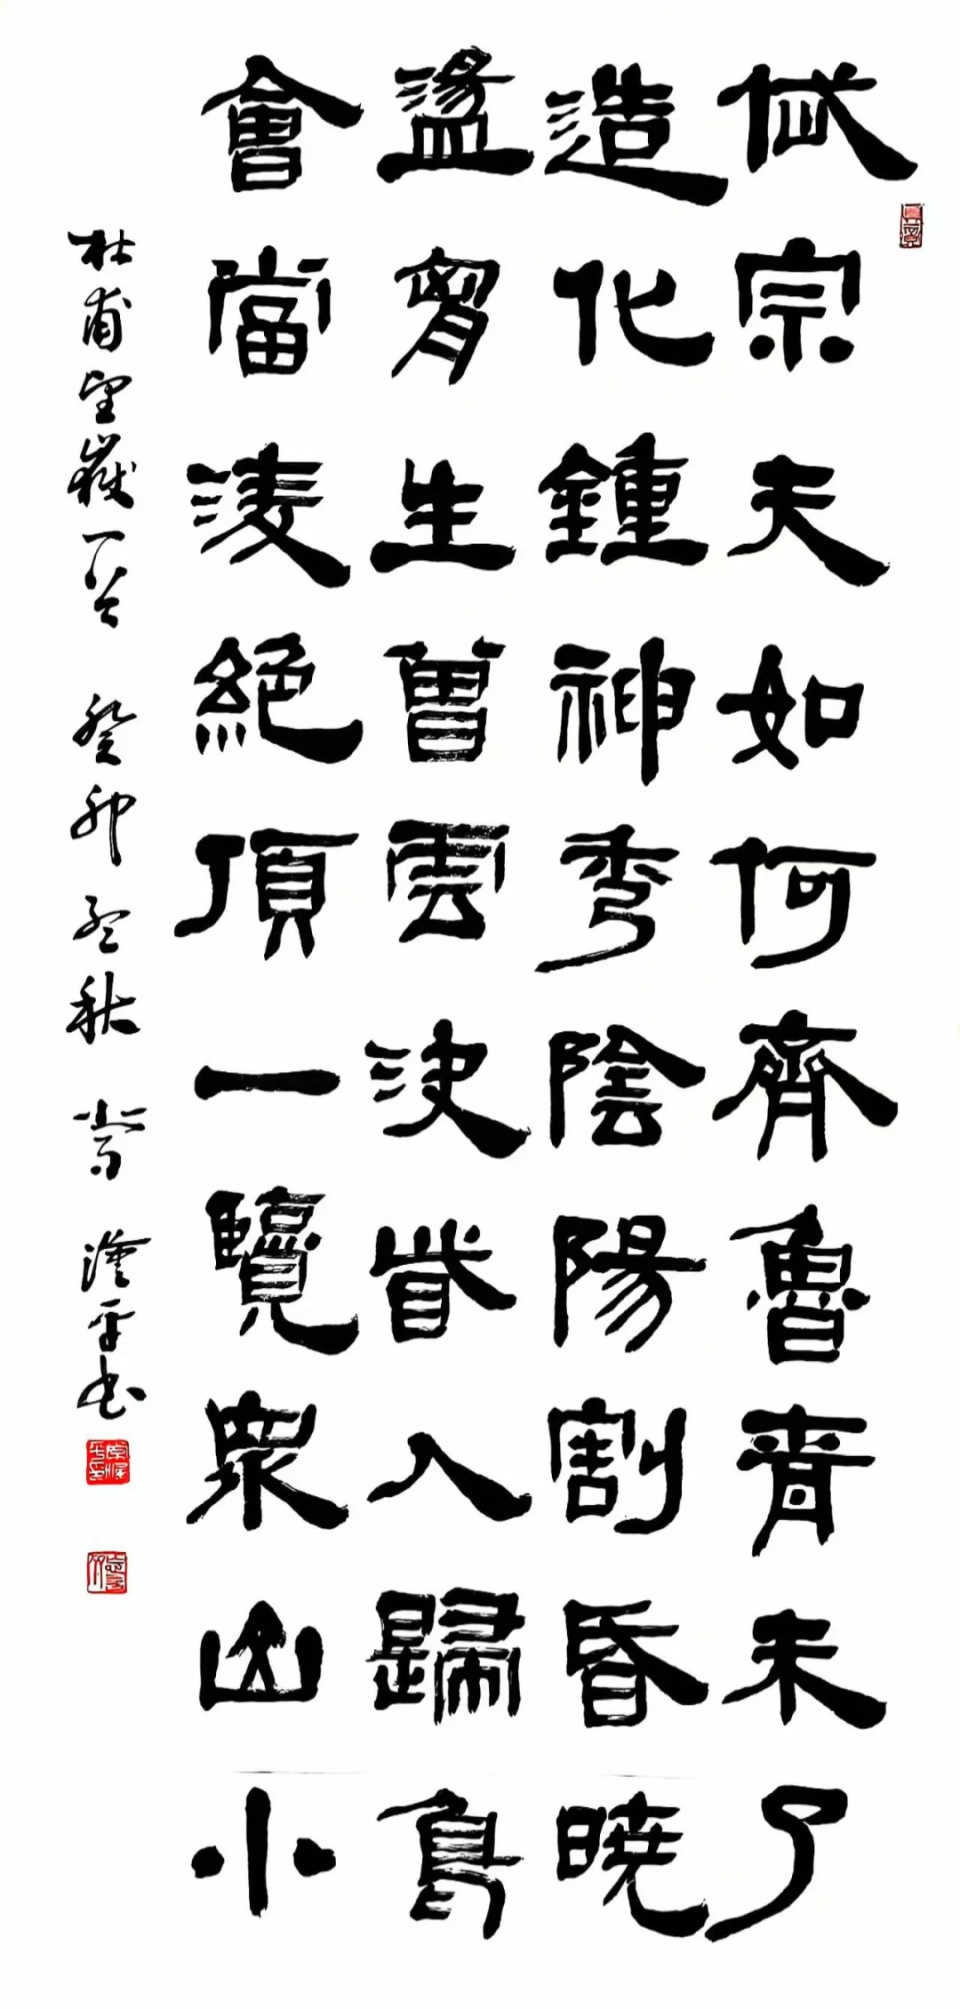 岱宗夫如何齊魯青未了
造化鍾神秀陰陽割昏曉
盪胷生曾雲決眥入歸鳥
會當淩絕頂一覽眾山小
杜甫望嶽一首 癸卯孟秋 漢平书